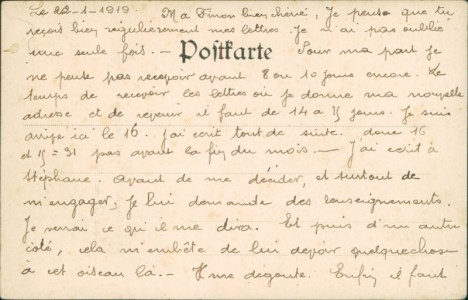 Le 22-1-1919. Ma Simon bien chéri, Je pense que tu
reçois bien régulièrement mes lettres. Je n'ai pas oublié
une seule fois. — Postkarte Pour ma part je
ne pense pas recevoir avant 8 ou 10 jours encore. Le
temps de recevoir les lettres où je donne ma nouvelle
adresse et de revenir il faut de 14 à 15 jours. Je suis
arrivé ici le 16. J'ai écrit tout de suite. donc 16
et 15 = 31 pas avant la fin du mois. — J'ai écrit à
Stéphane. Avant de me décider, et surtout de
m'engager, je lui demande des renseignements.
Je verrai ce qu'il me dira. Et puis d'un autre
côté, cela m'embête de lui devoir quelque chose
à cet oiseau là. — Il me dégoute. Enfin il faut